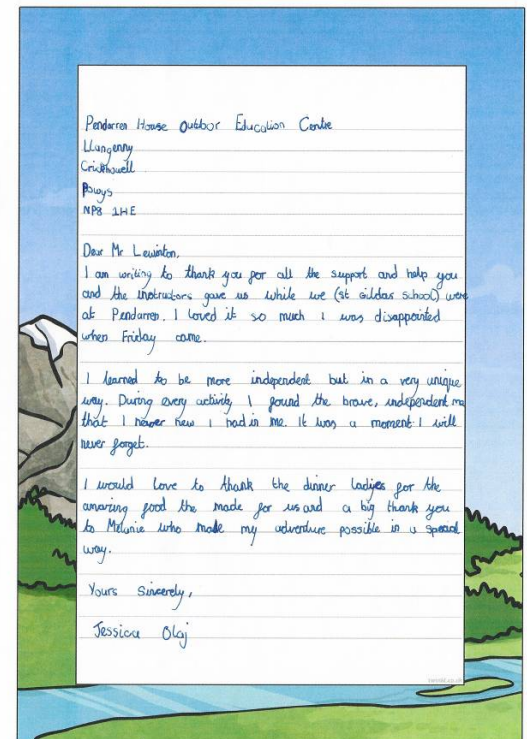 Pendarren House Outdoor Education Centre
Llangenny
Crickhowell
Powys
NP8 1HE
Dear Mr Lewinton,
I am writing to thank you for all the support and help you
and the instructors gave us while we (st Gildas School) were
at Pendarren. I loved it so much I was disappointed
when Friday came.
I learned to be more independent but in a very unique
way. During every activity, I found the brave, independent me
that I never new I had in me. It was a moment I will
never forget.
I would love to thank the dinner ladyes for the
amazing food the made for us and a big thank you
to Melanie who made my adventure possible in a special
way.
Yours Sincerely,
Jessica Olaj